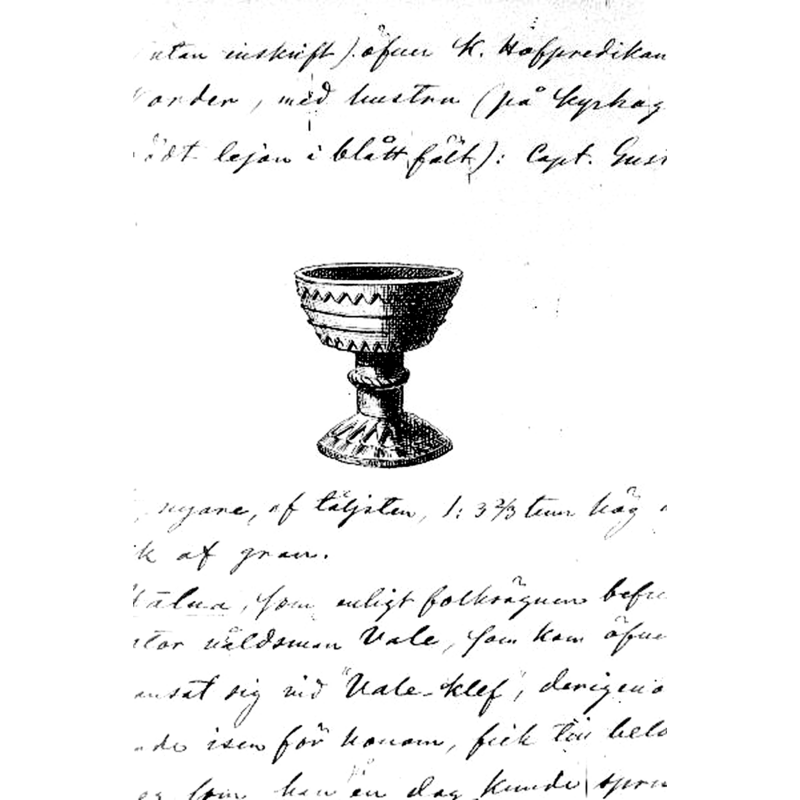 utan inskrift) öfver K. Hofpredikan
med hustru (på kyrkog
lejon i blått fält): Capt. Gust
nyare, af täljsten, 1: 3 2/3 tum hög
af gran.
som enligt folksägnen befr
våldsman Vale, som kom öfve
ansat sig vid "Vale-klef", derigeno
isen för honom, fick till belö
som han en dag kunde spru